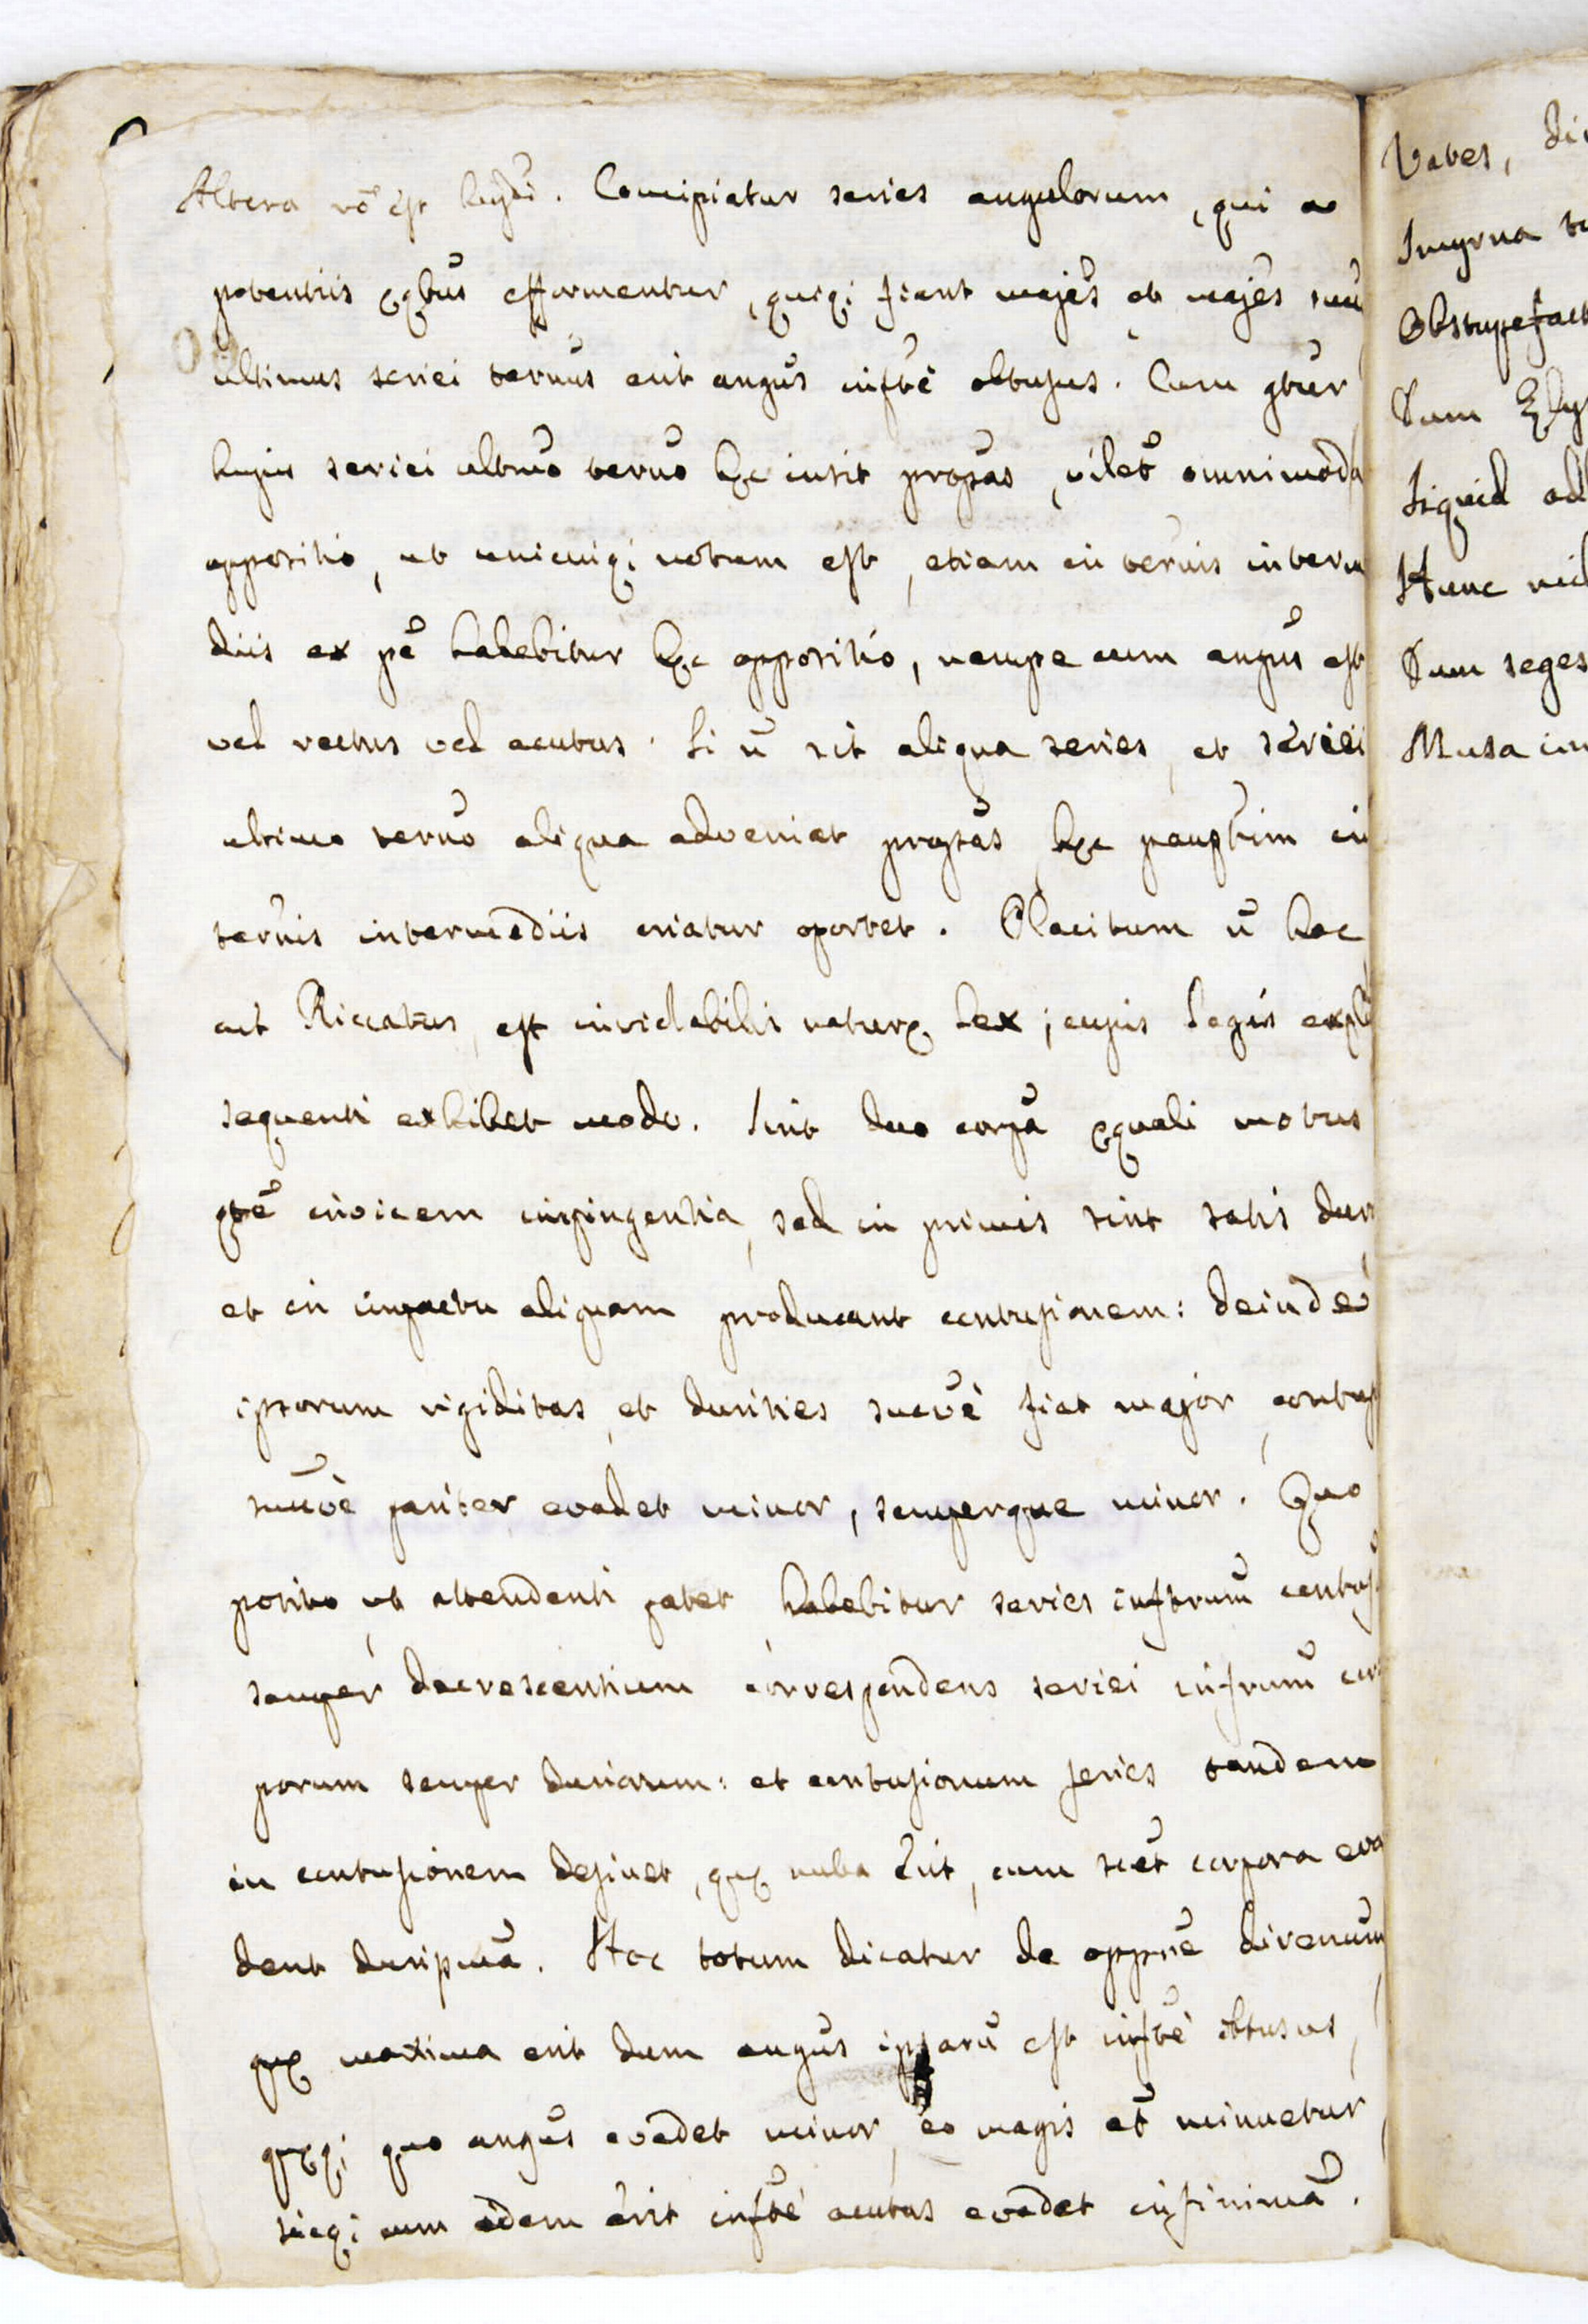 Altera rõ est hujõi. Concipiatur series angulorum, qui a
potentiis ęqlbus efformentur, quiq; fiant majes et majes
ultimus seriei ternus erit angus infte obtusus. Cum gtur
hujus seriei ultimo terno hęc insit proptas, vilet omnimoda
oppositio, ut unicuiq; notum est, etiam in ternis interm
diis ex pe habebitur hęc oppositio, nempe cum angus est
vel rectus vel acutus. Si u sit aliqua series, et seriei
ultimo terno aliqua adveniat proptas hęc in
ternis intermediis oriatur oportet. Placitum u hoc
ait Riccatus, est inviolabilis naturę lex; cujus legis expli
sequenti exhibet modo. Sint duo corpa ęquali motus
qte invicem impingentia, sed in primis sint satis dur
et in impactu aliquam producant contusionem: deinde
ipsorum rigiditas, et durities sucve fiat major, contus
sucve pariter evadet minor, semperque minor. Quo
posito, ut attendenti patet, habebitur series inftrum contus
semper decrescentium correspondens seriei infrum cor
porum semper duriorum: et contusionum series tandem
in contusionem desinet, quę nulla erit, cum scet corpora eva
dent durissma. Hoc totum dicatur de oppne direnum
quę maxima erit dum angus ipsaru est infte obtusus,
quęq; quo angus evadet minor, eo magis et minuetur
sicq; cum idem erit infte acutus evadet infinima.
Vates,
Smyrna
Obstupefact
Dum Ely
Siquid ad
Hunc
Dum seges
Musa